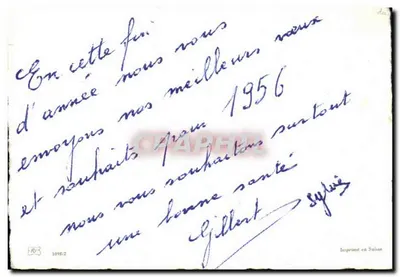 En cette fin
d'année nous vous
envoyons nos meilleurs vœux
et souhaits pour 1956
nous vous souhaitons surtout
une bonne santé
Gilbert Sylvie
CPAPHIL
Imprimé en Suisse